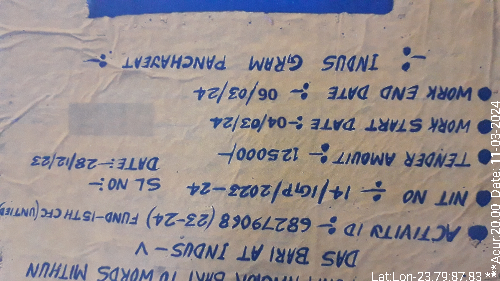 BARI TO WORDS MITHUN
DAS BARI AT INDUS - V
ACTIVITY ID :- 68279068 (23-24) FUND-15TH CFC (UNTIED)
NIT NO :- 14/IGP/2023-24 SL NO:-
DATE:-28/12/23
TENDER AMOUNT :- 125000/-
WORK START DATE:-04/03/24
WORK END DATE :- 06/03/24
-: INDUS GRAM PANCHAYEAT :-
Lat:Lon-23.79:87.83 *** Acur:20.00 Date: 11-03-2024